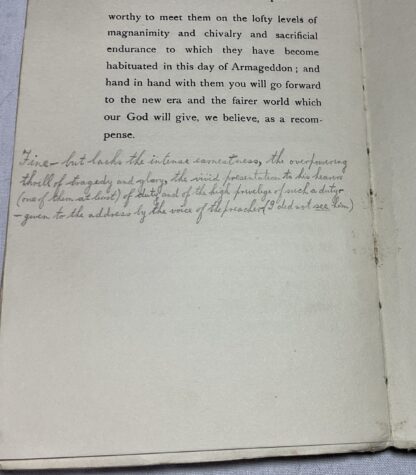 worthy to meet them on the lofty levels of
magnanimity and chivalry and sacrificial
endurance to which they have become
habituated in this day of Armageddon; and
hand in hand with them you will go forward
to the new era and the fairer world which
our God will give, we believe, as a recom-
pense.
Fine – but lacks the intense earnestness, the overpowering
thrill of tragedy and glory, the vivid presentation to his hearers
(one of them at least) of duty and of the high privelige of such a duty –
– given to the address by the voice of the preacher (I did not see him)